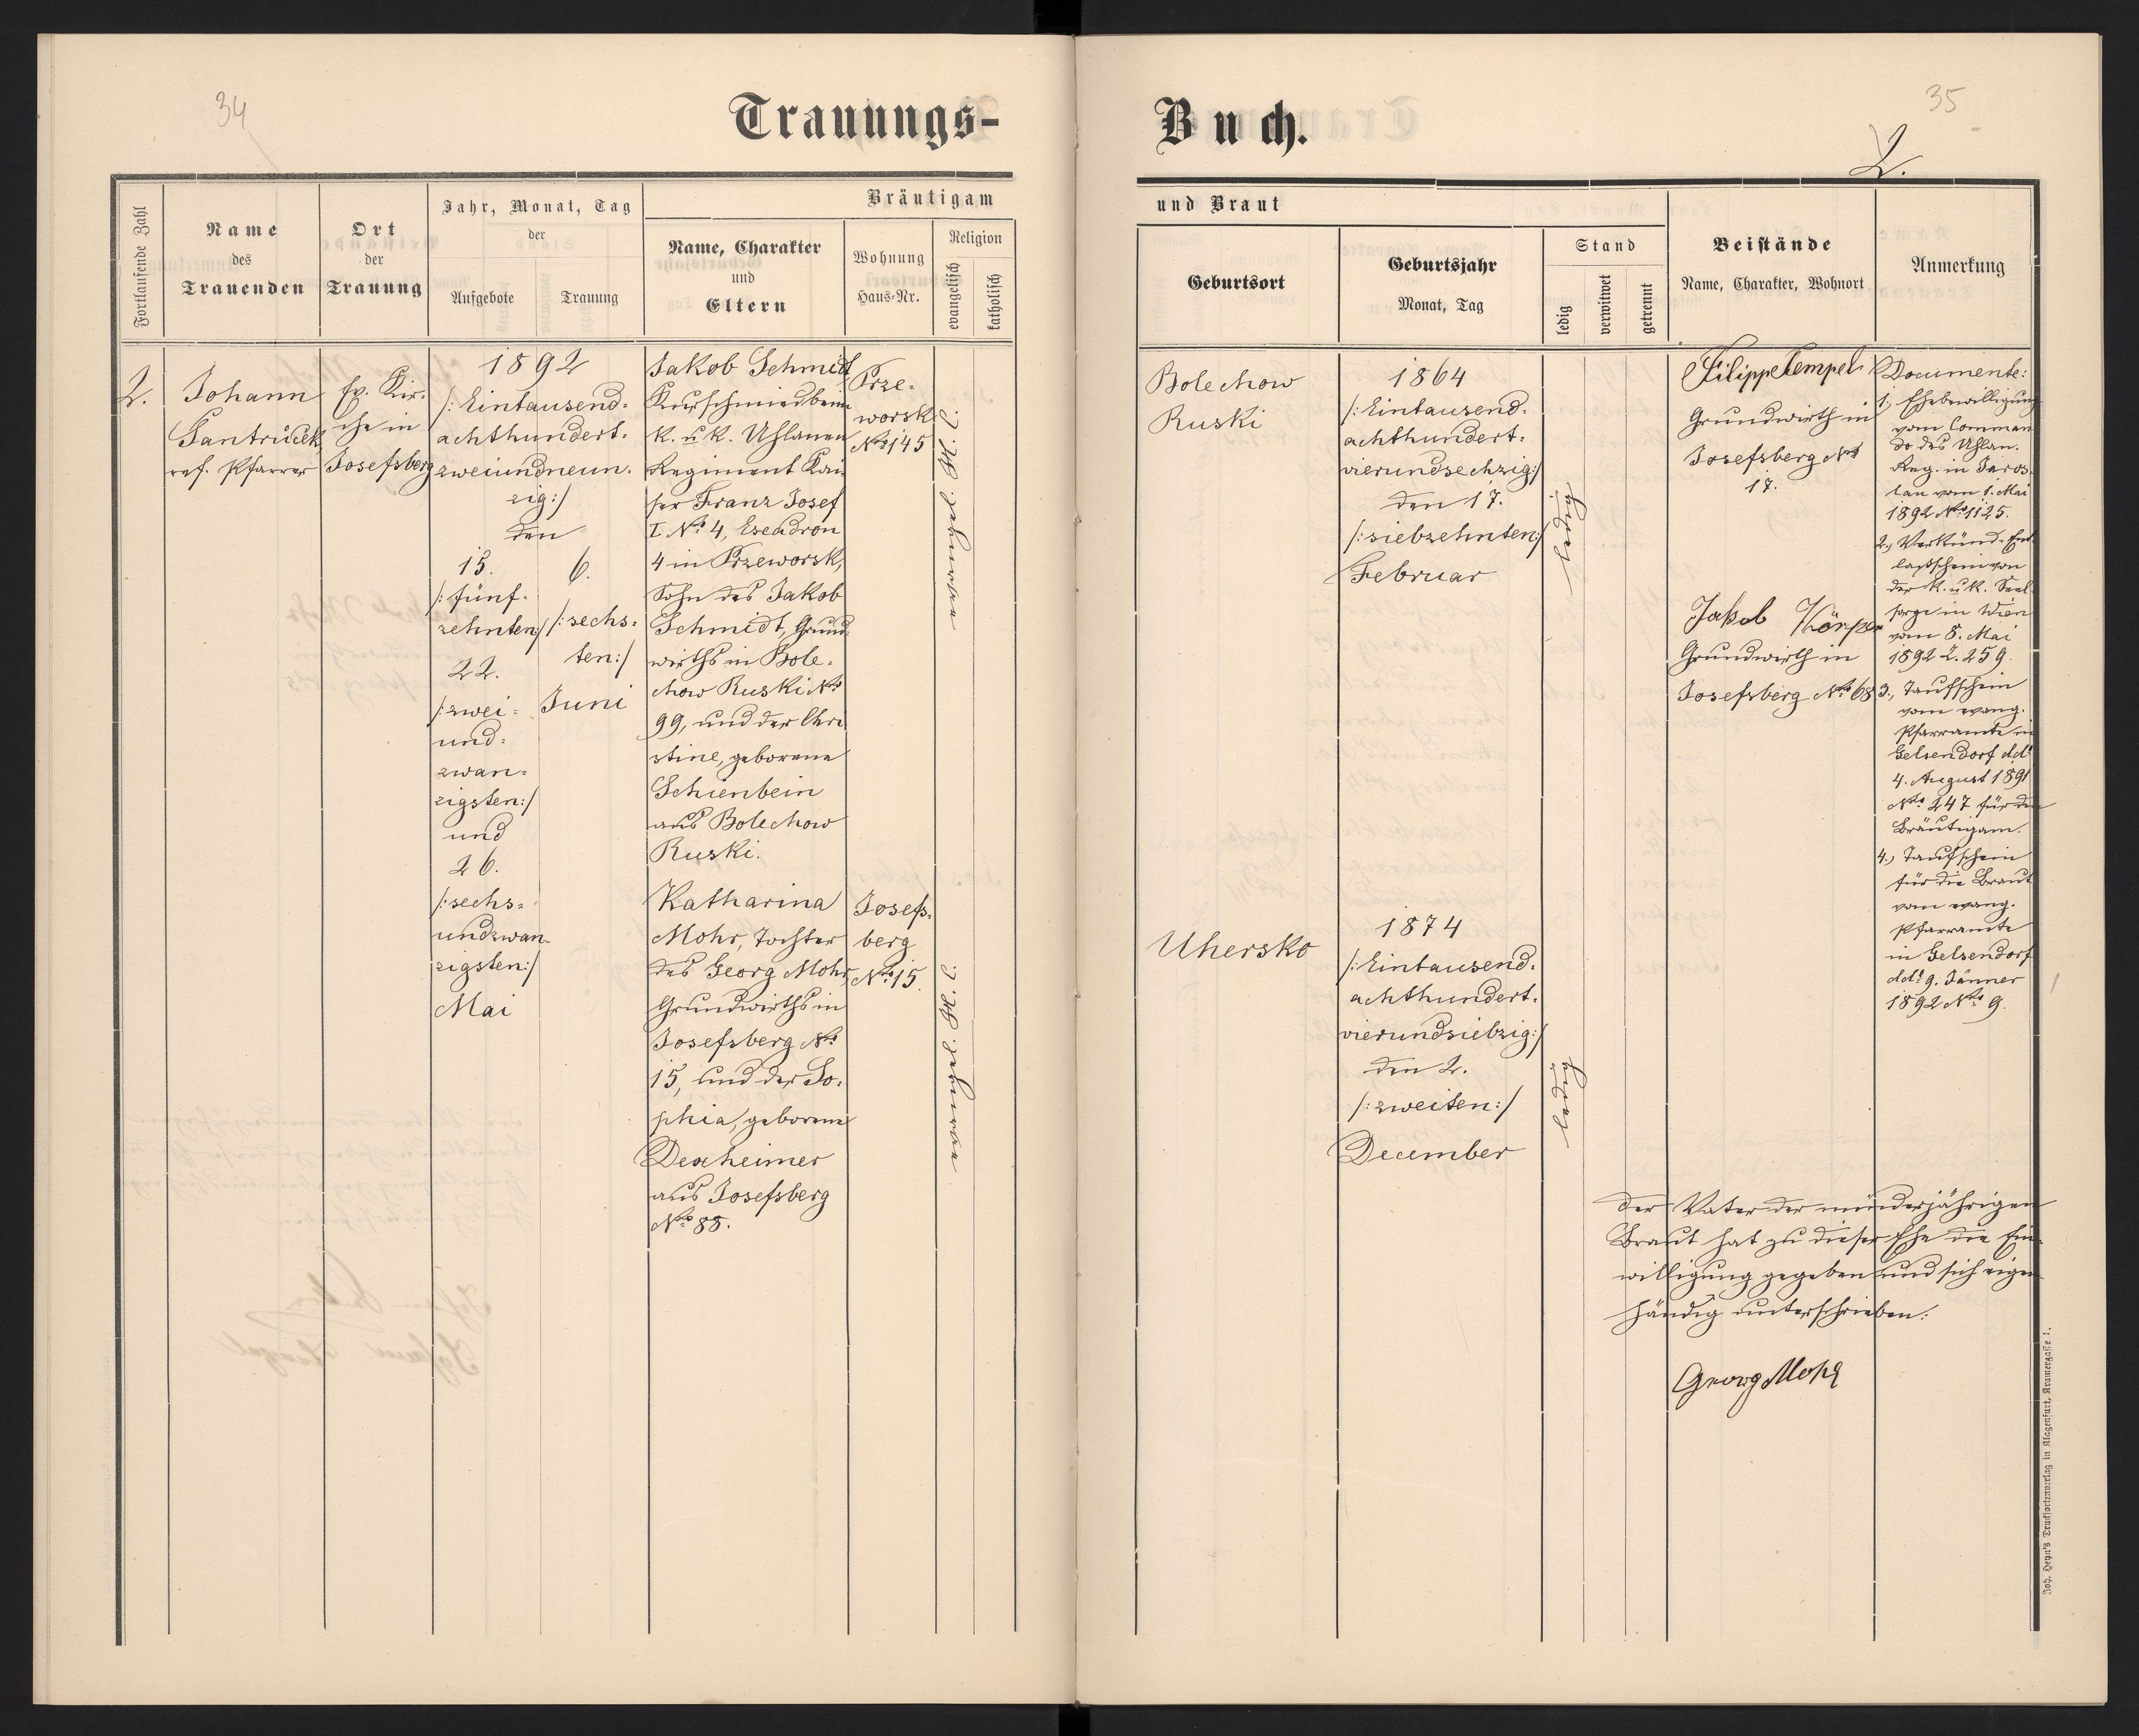 34
Trauungs-
Fortlaufende Zahl
Name
des
Trauenden
Ort
der
Trauung
Jahr, Monat, Tag
der
Aufgebote
Trauung
Bräutigam
Name, Charakter
und
Eltern
Wohnung
Haus-Nr.
Religion
evangelisch
katholisch
2.
Johann
Santrůček,
ref. Pfarrer
Ev. Kir-
che in
Josefsberg
1892
/: Eintausend-
achthundert-
zweiundneun-
zig :/
den
15.
/: fünf-
zehnten :/
22.
/: zwei-
und-
zwan-
zigsten :/
und
26.
/: sechs-
undzwan-
zigsten :/
Mai
6.
/: sechs-
ten :/
Juni
Jakob Schmidt
Kurschmied beim
k. u. k. Uhlanen
Regiment Kai-
ser Franz Josef
I. No 4, Escadron
4 in Przeworsk,
Sohn des Jakob
Schmidt, Grund-
wirths in Bole-
chow Ruski No
99, und der Chri-
stine, geborene
Schienbein
aus Bolechow
Ruski.
Prze-
worsk
No 145
Katharina
Mohr, Tochter
des Georg Mohr,
Grundwirths in
Josefsberg No
15, und der So-
phia, geborene
Dexheimer
aus Josefsberg
No 88.
Josefs-
berg
No 15.
35
Buch.
2.
und Braut
Geburtsort
Geburtsjahr
Monat, Tag
Stand
ledig
verwitwet
getrennt
Beistände
Name, Charakter, Wohnort
Anmerkung
Bolechow
Ruski
1864
/: Eintausend-
achthundert-
vierundsechzig :/
den 17.
/: siebzehnten :/
Februar
ledig
Filipp Tempel
Grundwirth in
Josefsberg No
17.
Jakob Körper
Grundwirth in
Josefsberg No 68
Documente:
1., Ehebewilligung
vom Comman-
do des Uhlan.
Reg. in Jaros-
lau vom 1. Mai
1892 No 1125.
2., Verkünd-Ent-
laßschein von
der k. u. k. Seel-
sorge in Wien
vom 8. Mai
1892 Z. 259.
3., Taufschein
vom evang.
Pfarramte in
Gelsendorf ddo
4. August 1891
No 247 für den
Bräutigam.
4., Taufschein
für die Braut
vom evang.
Pfarramte
in Gelsendorf
ddo 9. Jänner
1892 No 9.
Uhersko
1874
/: Eintausend-
achthundert-
vierundsiebzig :/
den 2.
/: zweiten :/
December
ledig
Der Vater der minderjährigen
Braut hat zu dieser Ehe die Ein-
willigung gegeben und sich eigen-
händig unterschrieben:
Georg Mohr
Joh. Heyn's Drucksortenverlag in Klagenfurt, Kramergasse 1.